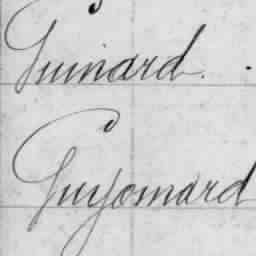 Guinard.
Guyomard